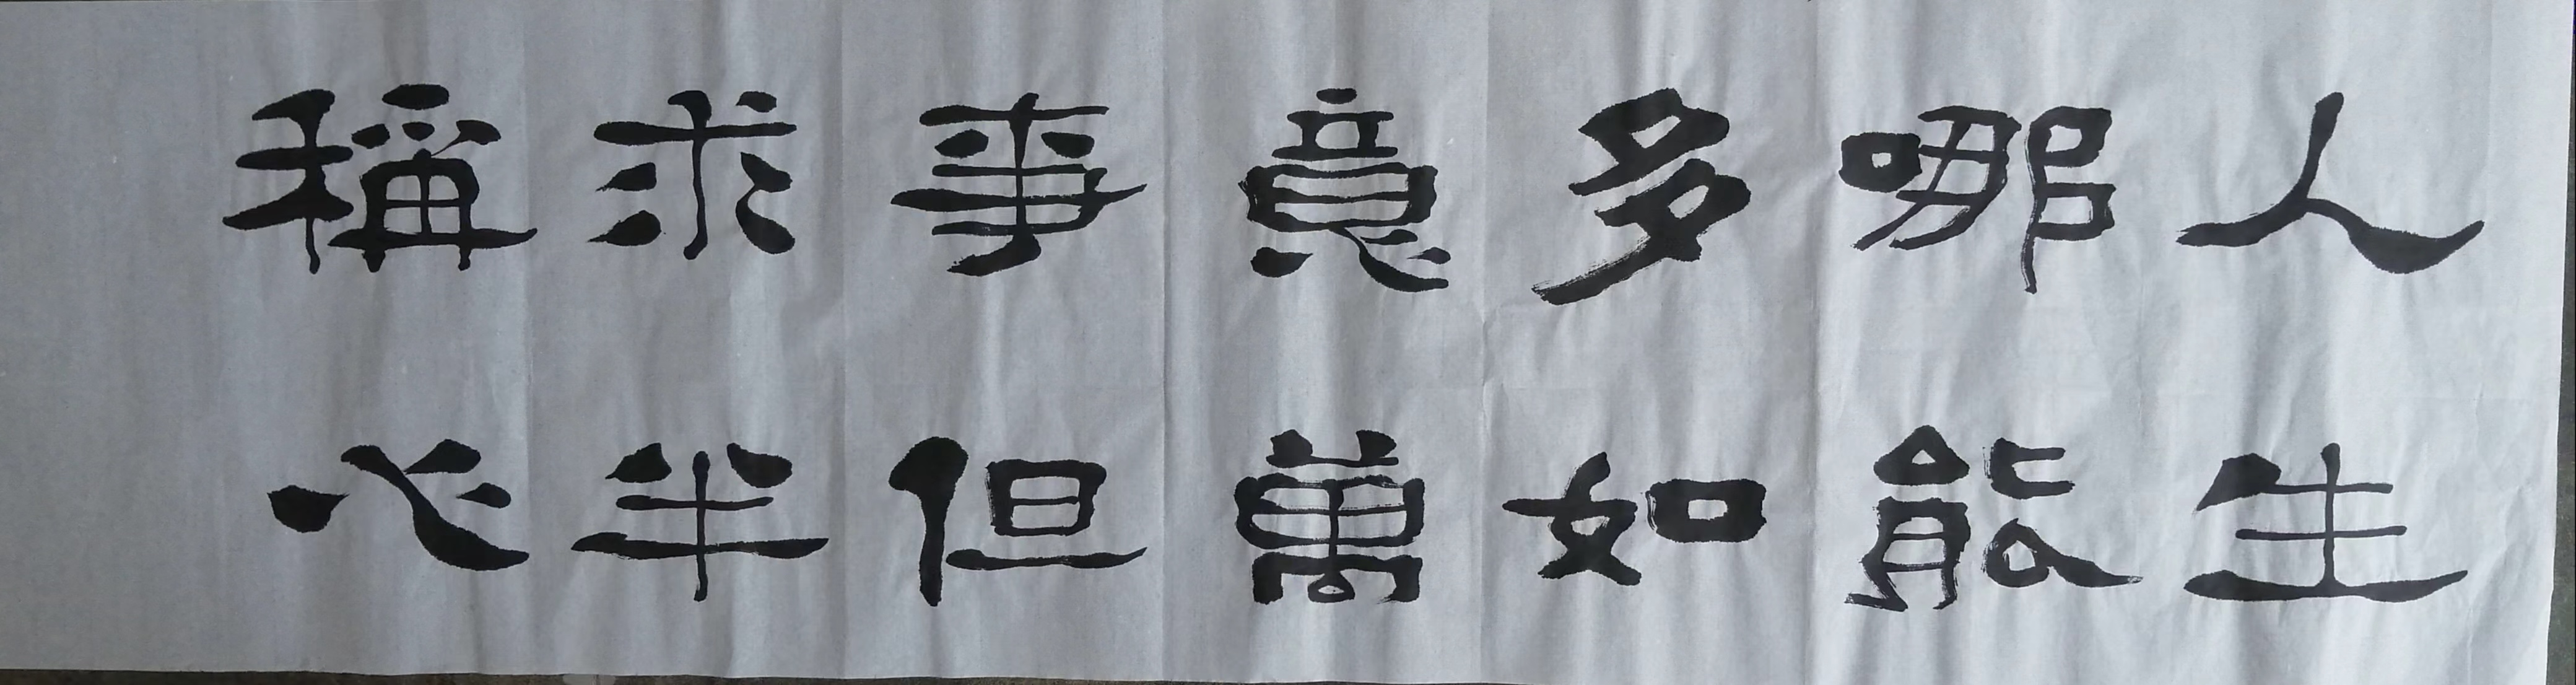 人生
哪能
多如
意萬
事但
求半
稱心